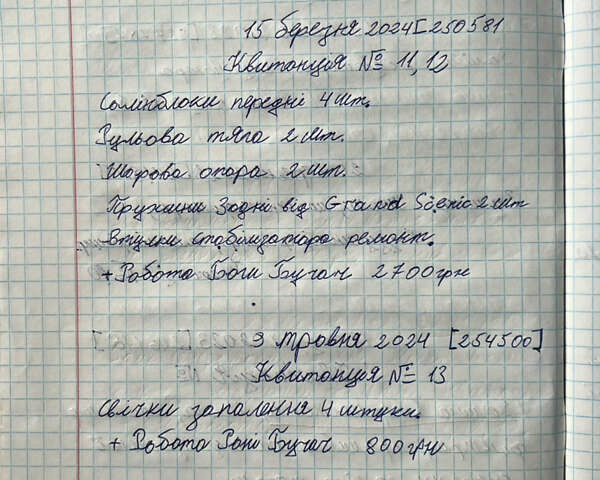 15 березня 2024 [250581
Квитанция № 11, 12
Солінблоки передні 4 шт.
Рульова тяга 2 шт.
Шарова опора 2 шт.
Пружини Задні від Grand Scenic 2 шт
Втулки стабилизатора ремонт.
+ Робота Боги Бучач 2700 грн
3 травня 2024 [254500]
Квитанция № 13
Свічки запалення 4 штуки.
+ Робота Роні Бучач 800 грн